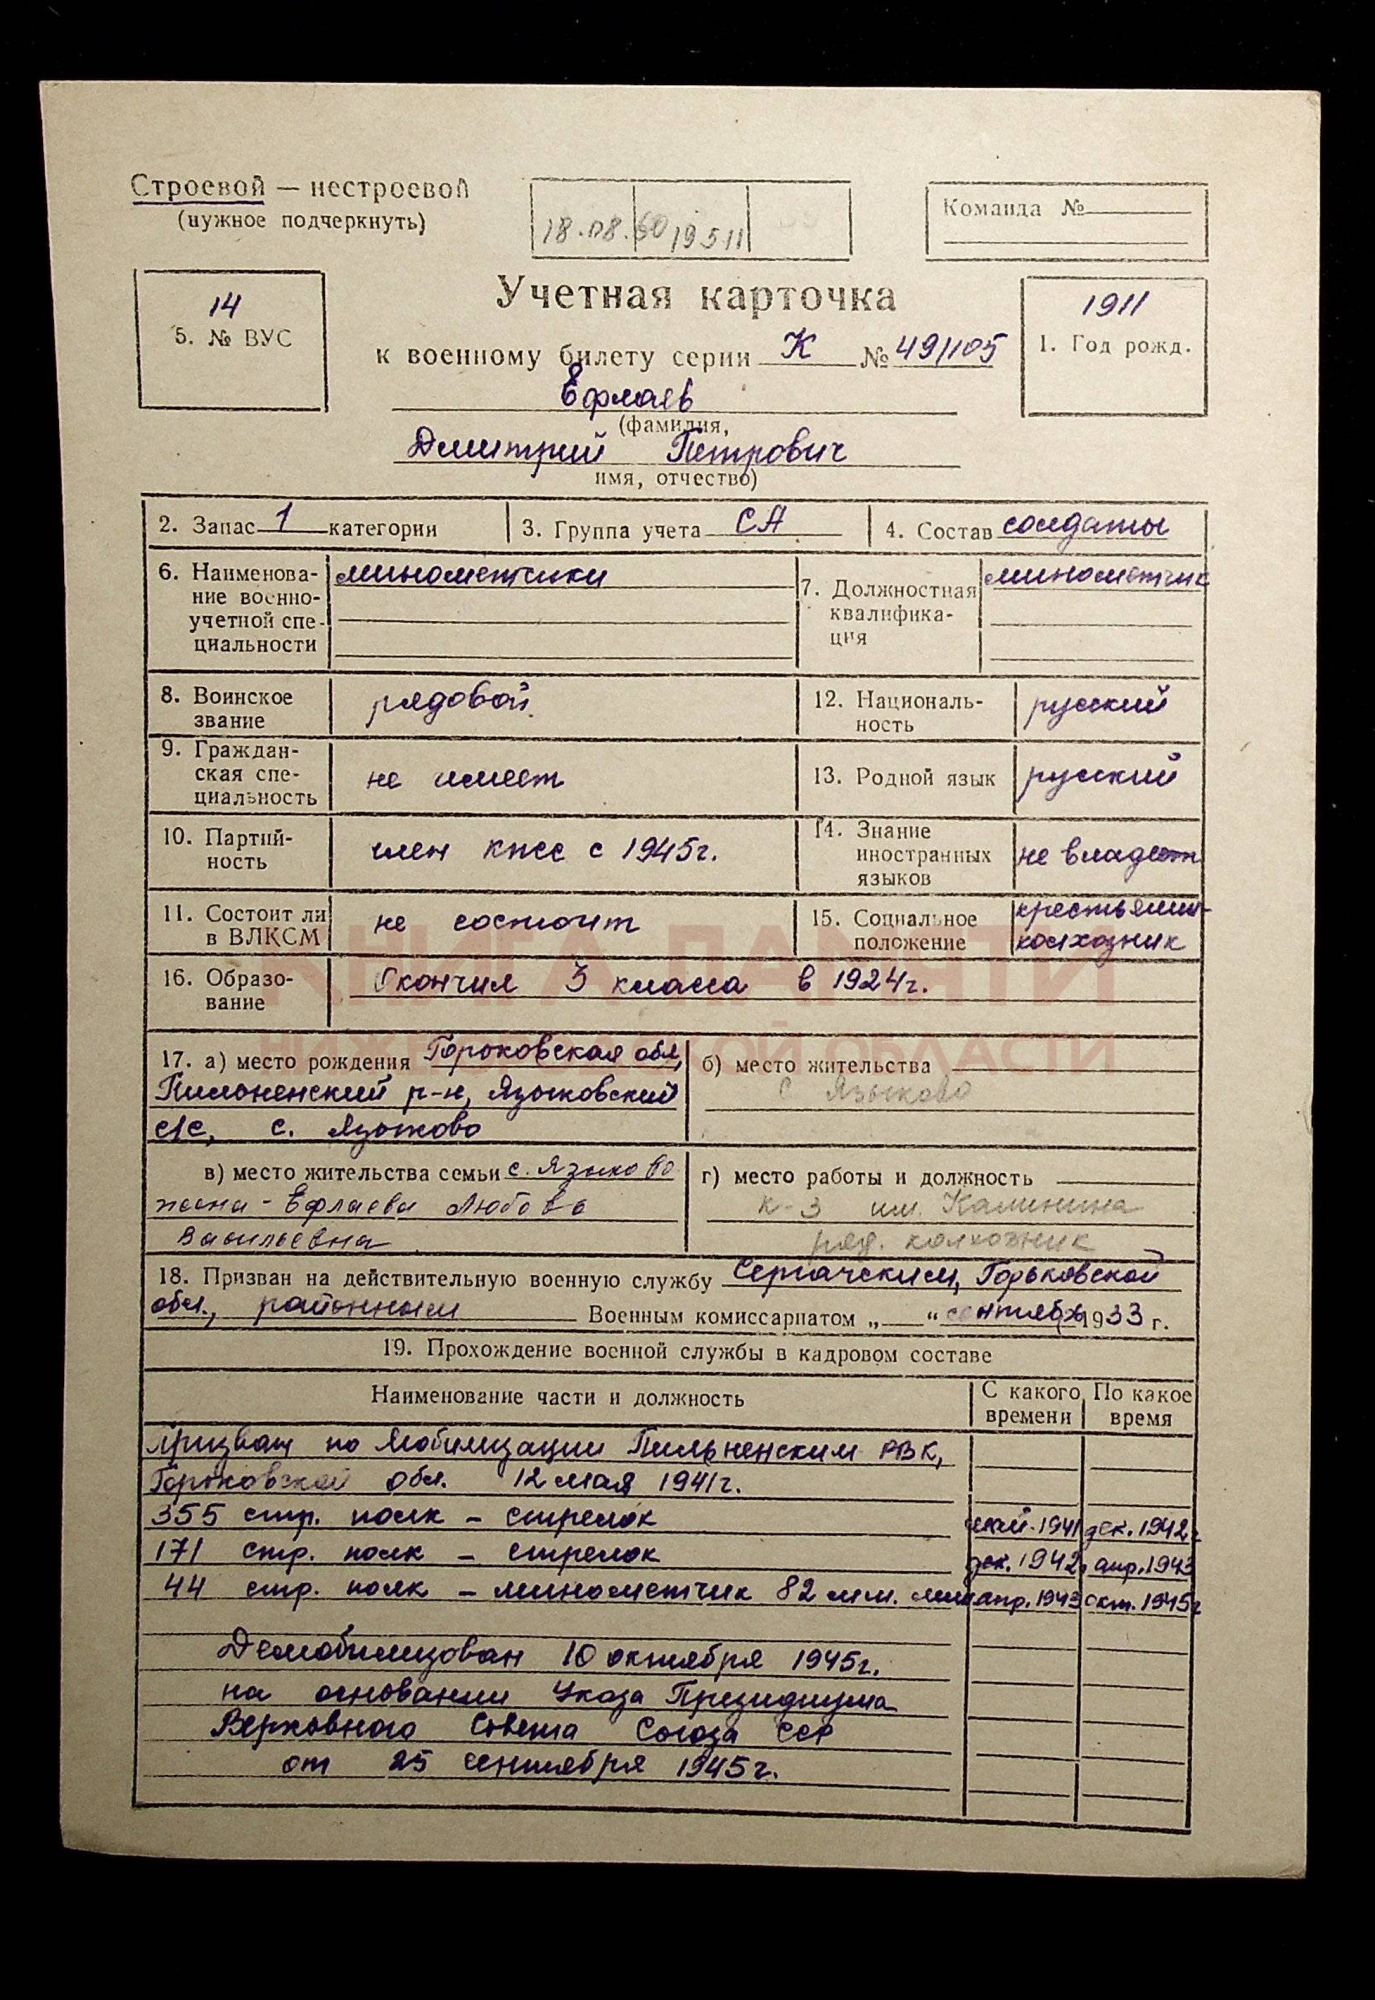 Строевой — нестроевой
(нужное подчеркнуть)
18.08.60 19511
Команда №
14
5. № ВУС
Учетная карточка
к военному билету серии К № 491105
1911
1. Год рожд.
Ефлаев
(фамилия,
Дмитрий Петрович
имя, отчество)
2. Запас 1 категории
3. Группа учета СА
4. Состав солдаты
6. Наименова-
ние военно-
учетной спе-
циальности
минометчики
7. Должностная
квалифика-
ция
минометчик
8. Воинское
звание
рядовой
12. Националь-
ность
русский
9. Граждан-
ская спе-
циальность
не имеет
13. Родной язык
русский
10. Партий-
ность
член кпсс с 1945г.
14. Знание
иностранных
языков
не владеет
11. Состоит ли
в ВЛКСМ
не состоит
15. Социальное
положение
крестьянин-
колхозник
16. Образо-
вание
Окончил 3 класса в 1924г.
КНИГА ПАМЯТИ
НИЖЕГОРОДСКОЙ ОБЛАСТИ
17. а) место рождения Горьковская обл,
Пильненский р-н, Языковский
с/с, с. Языково
б) место жительства
с Языково
в) место жительства семьи с. Языково
жена - Ефлаева Любовь
Васильевна
г) место работы и должность
к-з им. Калинина
ряд. колхозник
18. Призван на действительную военную службу Сергачским, Горьковской
обл., районным Военным комиссариатом „ “ сентября 1933 г.
19. Прохождение военной службы в кадровом составе
Наименование части и должность
С какого
времени
По какое
время
Призван по мобилизации Пильненским РВК,
Горьковской обл. 12 мая 1941г.
355 стр. полк – стрелок май.1941 дек.1942г
171 стр. полк – стрелок дек.1942, апр.1943
44 стр. полк – минометчик 82 мм. мин апр.1943 окт.1945г
Демобилизован 10 октября 1945г.
на основании Указа Президиума
Верховного Совета Союза ССР
от 25 сентября 1945г.